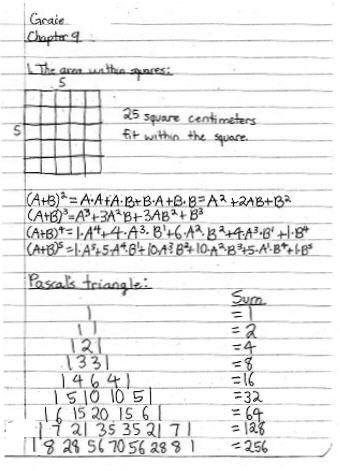 Gracie
Chapter 9
1. The area within squares:
5
5
25 square centimeters
fit within the square.
(A+B)²=A·A+A·B+B·A+B·B=A²+2AB+B²
(A+B)³=A³+3A²B+3AB²+B³
(A+B)⁴=1·A⁴+4·A³·B¹+6·A²·B²+4·A³·B¹+1·B⁴
(A+B)⁵=1·A⁵+5·A⁴·B¹+10·A³B²+10·A²·B³+5·A¹·B⁴+1·B⁵
Pascal's triangle:
Sum
1 =1
1 1 =2
1 2 1 =4
1 3 3 1 =8
1 4 6 4 1 =16
1 5 10 10 5 1 =32
1 6 15 20 15 6 1 =64
1 7 21 35 35 21 7 1 =128
1 8 28 56 70 56 28 8 1 =256